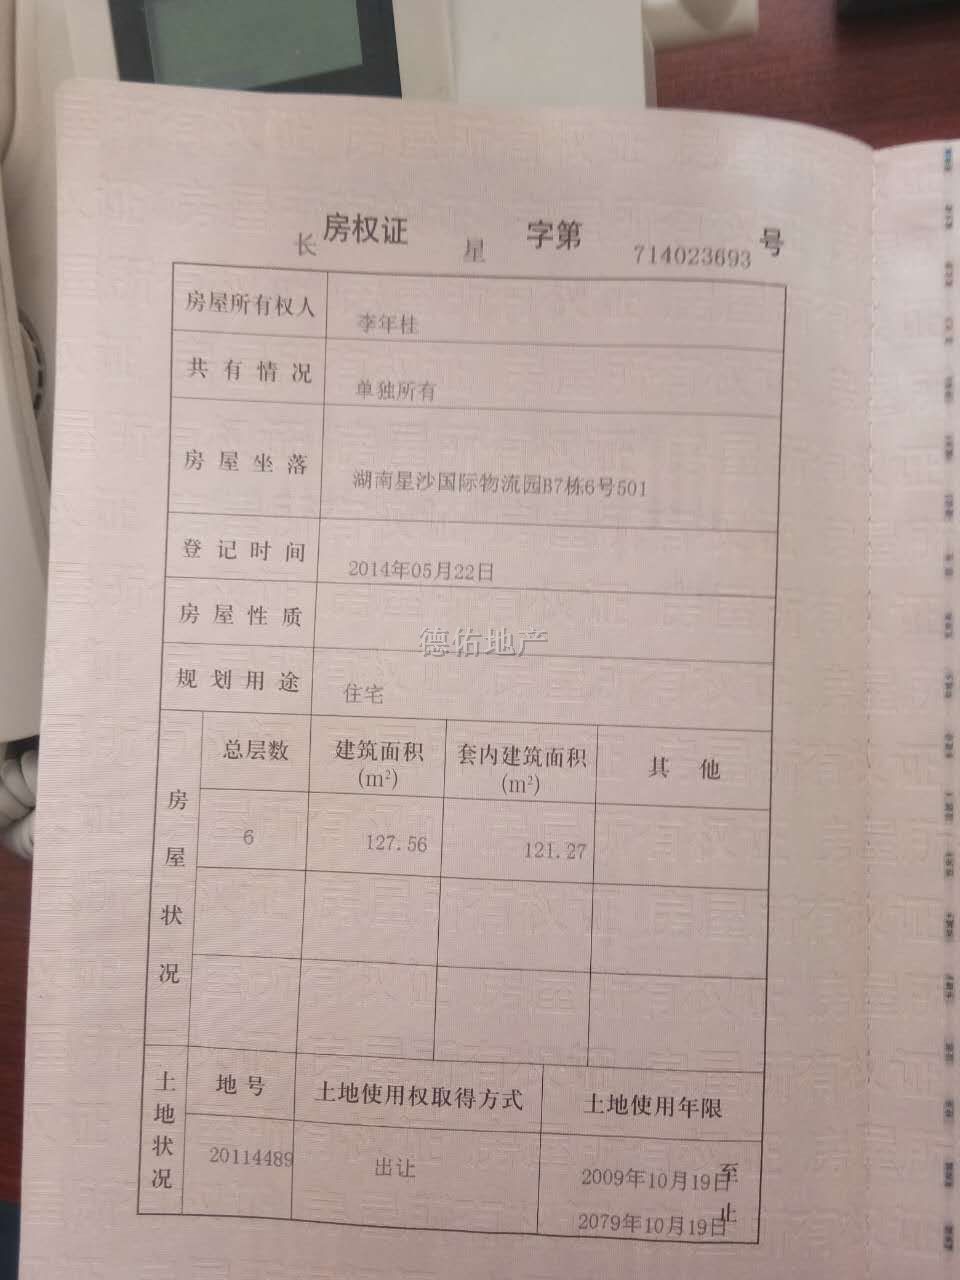 长 房权证 星 字第 714023693 号
房屋所有权人 李年桂
共有情况 单独所有
房屋坐落 湖南星沙国际物流园B7栋6号501
登记时间 2014年05月22日
房屋性质
德佑地产
规划用途 住宅
房屋状况
总层数 建筑面积(m²) 套内建筑面积(m²) 其他
6 127.56 121.27
土地状况
地号 土地使用权取得方式 土地使用年限
20114489 出让 2009年10月19日至
2079年10月19日止